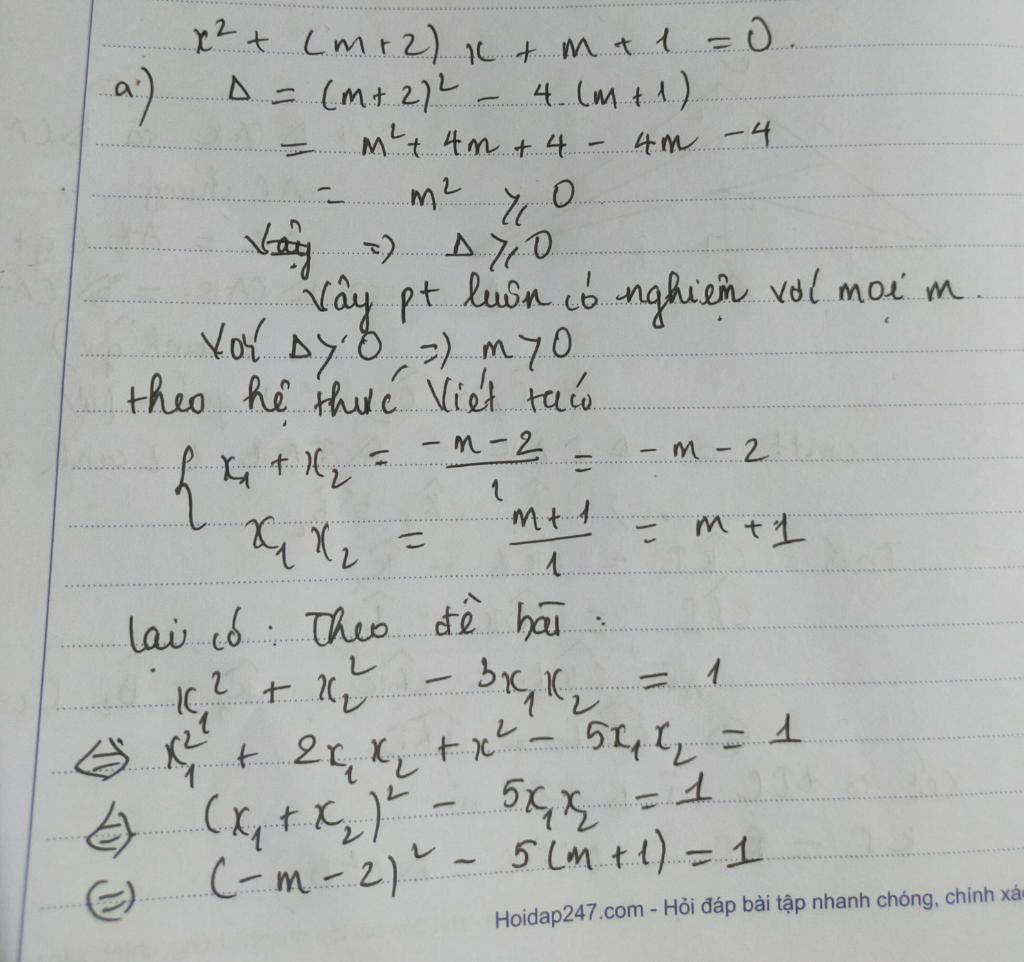 x² + (m+2) x + m + 1 = 0.
a.) Δ = (m+2)² - 4.(m+1)
= m² + 4m + 4 - 4m - 4
= m² ⩾ 0
Vậy => Δ ⩾ 0
Vây pt luôn có nghiệm với mọi m.
Với Δ > 0 => m > 0
theo hệ thức Viét ta có
{ x₁ + x₂ = (-m-2)/1 = -m-2
x₁ x₂ = (m+1)/1 = m+1
lại có : Theo đề bài :
x₁² + x₂² - 3x₁x₂ = 1
⇔ x₁² + 2x₁x₂ + x² - 5x₁x₂ = 1
⇔ (x₁ + x₂)² - 5x₁x₂ = 1
⇔ (-m-2)² - 5(m+1) = 1
Hoidap247.com - Hỏi đáp bài tập nhanh chóng, chính xá